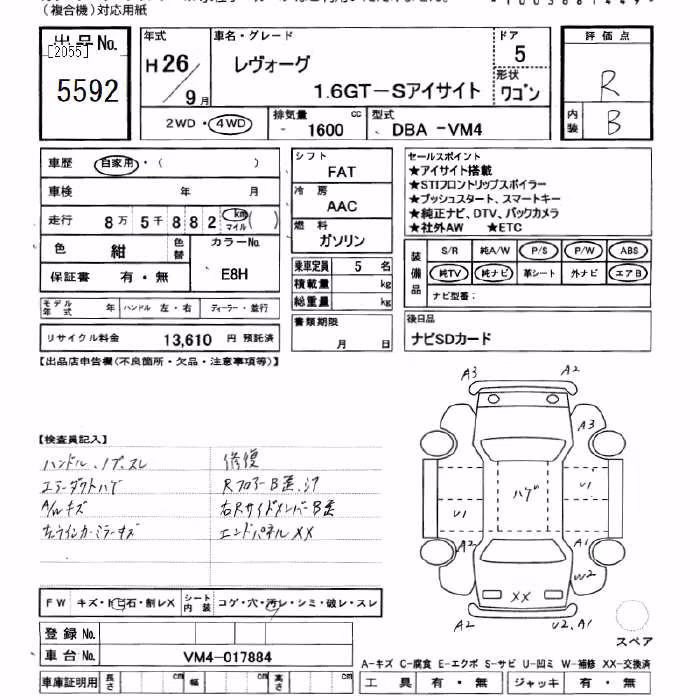 (複合機)対応用紙
出品No.
[2055]
5592
年式
H26/9月
車名・グレード
レヴォーグ
1.6GT-Sアイサイト
ドア
5
形状
ワゴン
評価点
R
内装
B
2WD・4WD
排気量
1600 cc
型式
DBA -VM4
車歴 自家用・( )
車検 年 月
走行 8万5千882 km マイル ( )
色 紺 色替
カラーNo.
E8H
保証書 有・無
モデル年式 年 ハンドル 左・右 ディーラー・並行
リサイクル料金 13,610 円 預託済
シフト
FAT
冷房
AAC
燃料
ガソリン
乗車定員 5 名
積載量 kg
総重量 kg
書類期限
月 日
セールスポイント
★アイサイト搭載
★STIフロントリップスポイラー
★プッシュスタート、スマートキー
★純正ナビ、DTV、バックカメラ
★社外AW ★ETC
装備品
S/R 純A/W P/S P/W ABS
純TV 純ナビ 革シート 外ナビ エアB
ナビ型番:
後日品
ナビSDカード
【出品店申告欄(不良箇所・欠品・注意事項等)】
【検査員記入】
ハンドル、ノブ、スレ
エアーダクトハゲ
A/Wキズ
左ウィンカーミラーキズ
修復
RフロアーB歪、シワ
右RサイドメンバーB歪
エンドパネルXX
A3 A2
A3
U1 ハゲ U1
A2 A1
W2
XX
A2 U2、A1
スペア
FW キズ・トビ石・割レX
シート内装 コゲ・穴・汚レ・シミ・破レ・スレ
登録No.
車台No. VM4-017884
A-キズ C-腐食 E-エクボ S-サビ U-凹ミ W-補修 XX-交換済
車庫証明用 長さ cm 幅 cm 高さ cm
工具 有・無 ジャッキ 有・無